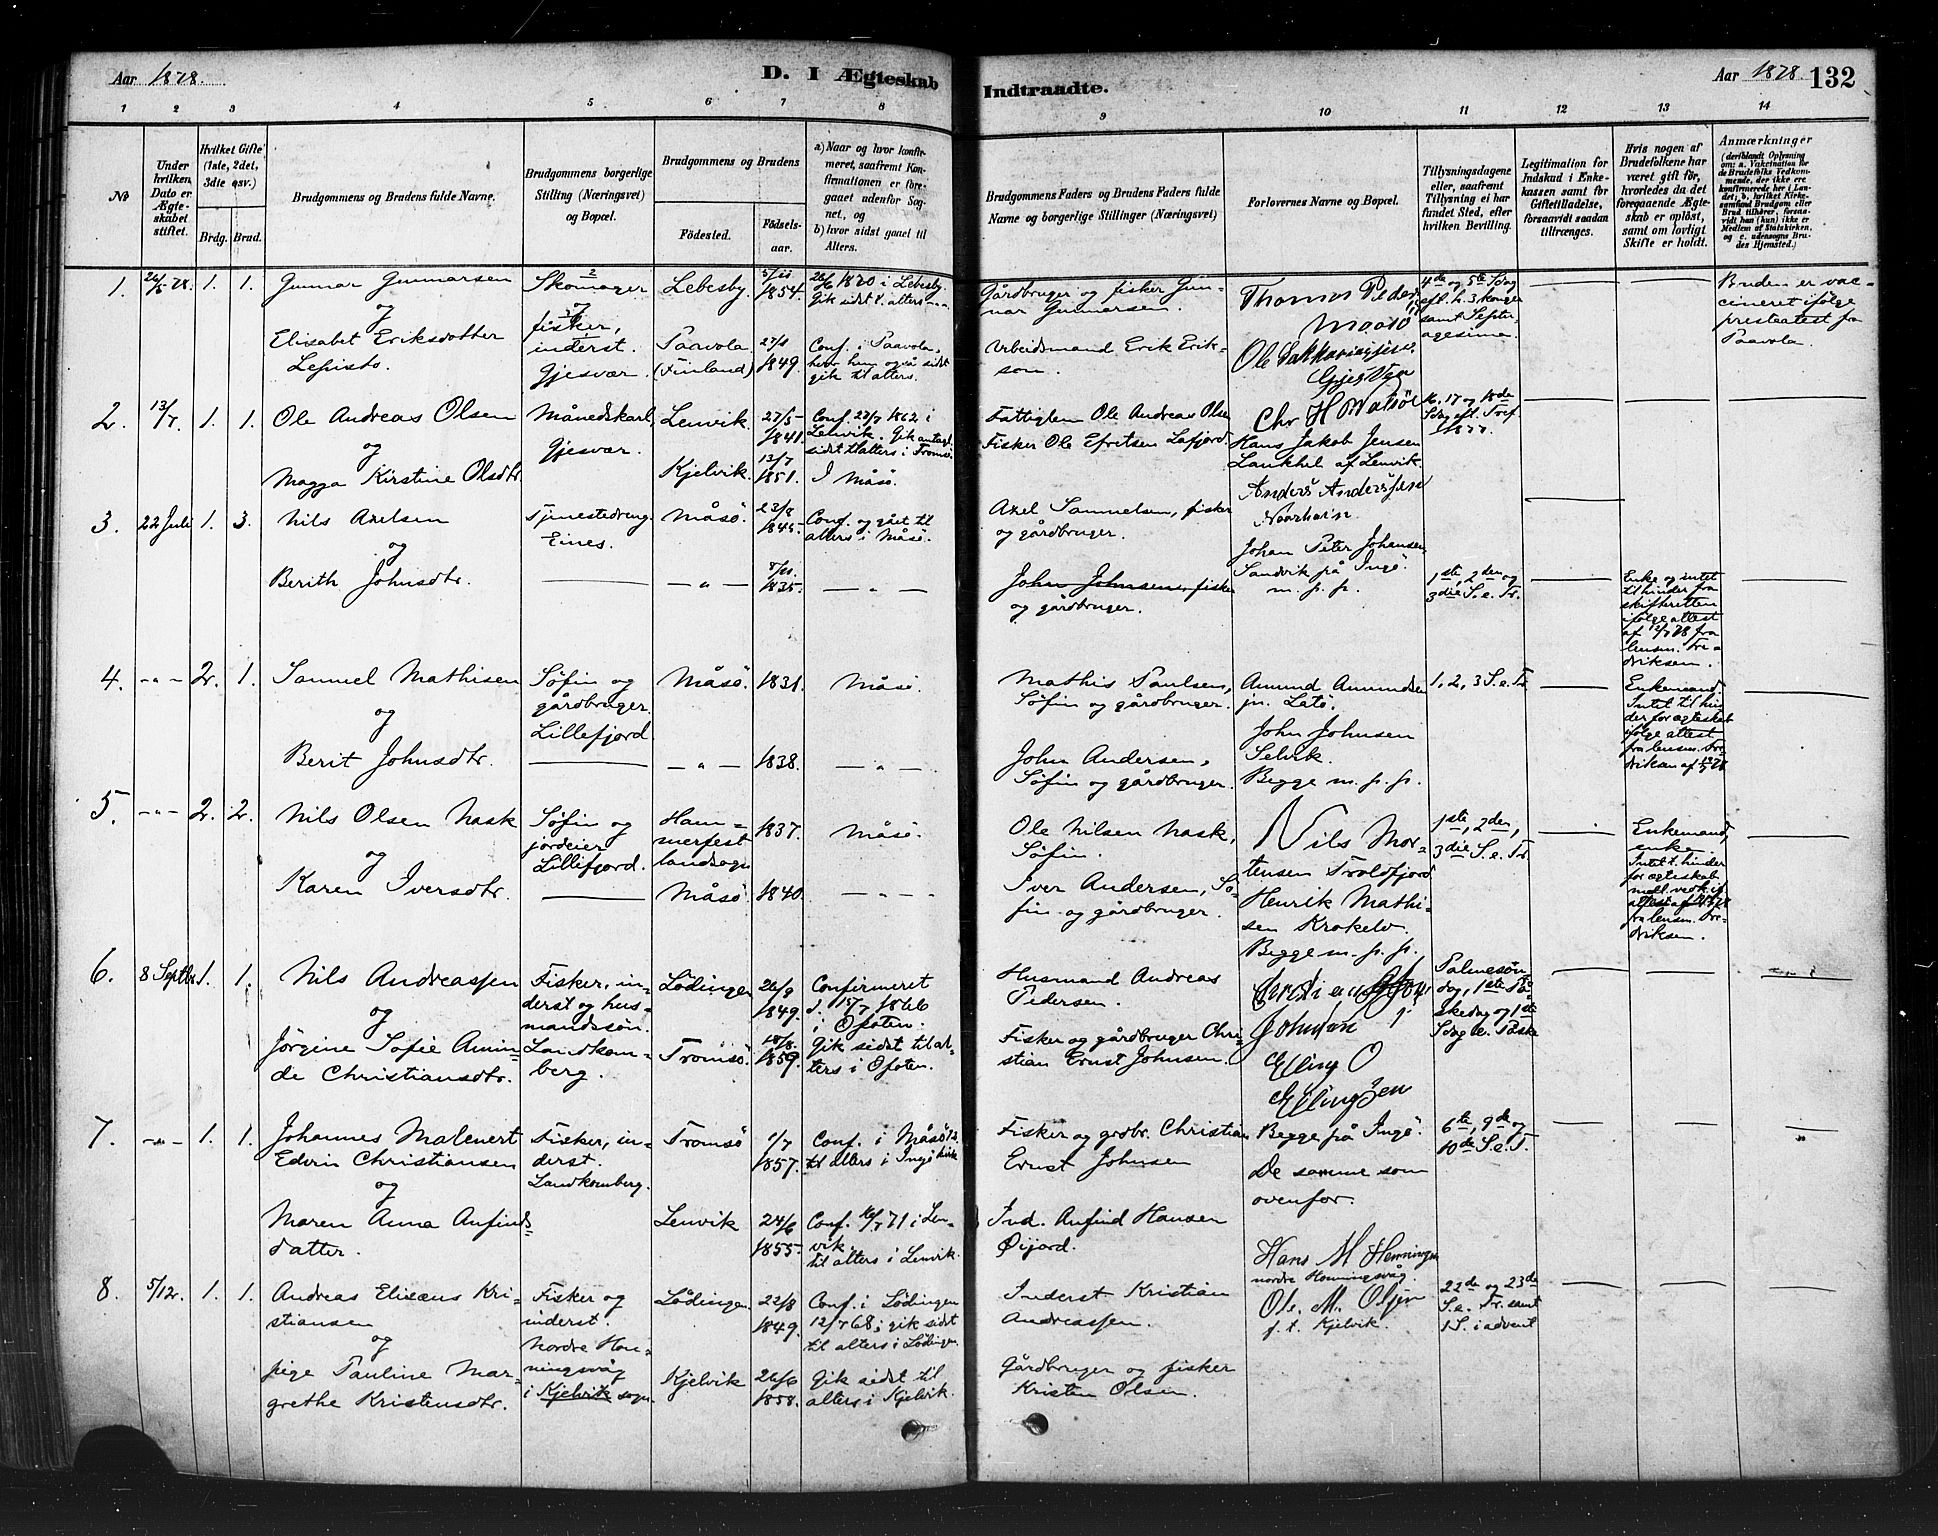 Aar 1878.
D. I Ægteskab
Indtraadte.
Aar 1878. 132
1 2 3 4 5 6 7 8 9 10 11 12 13 14
No
Under hvilken Dato er Ægteskabet stiftet.
Hvilket Gifte (1ste, 2det, 3die osv.)
Brdg. Brud.
Brudgommens og Brudens fulde Navne.
Brudgommens borgerlige Stilling (Næringsvei) og Bopæl.
Brudgommens og Brudens
Fødested.
Fødselsaar.
a) Naar og hvor konfirmeret, saafremt Konfirmationen er foregaaet udenfor Sognet, og
b) hvor sidst gaaet til Alters.
Brudgommens Faders og Brudens Faders fulde Navne og borgerlige Stillinger (Næringsvei)
Forlovernes Navne og Bopæl.
Tillysningsdagene eller, saafremt Tillysning ei har fundet Sted, efter hvilken Bevilling.
Legitimation for Indskud i Enkekassen samt for Giftetilladelse, forsaavidt saadan tiltrænges.
Hvis nogen af Brudefolkene har været gift før, hvorledes da det foregaaende Ægteskab er opløst, samt om lovligt Skifte er holdt.
Anmærkninger
1. 26/5 78. 1. 1.
Gunnar Gunnarsen
og
Elisabet Eriksdotter
Lepisto.
Skomager
og
fisker,
inderst.
Gjesvær.
Lebesby.
Paavola
(Finland)
5/11
1854.
27/1
1849.
26/6 1870 i Lebesby.
Gik sidst t. alters - " -
Conf. i Paavola,
hvor hun også sidst
gik til alters.
Gårdbruger og fisker Gunnar
Gunnarsen.
Arbeidsmand Erik Erikson.
Thomas Peders
Maasö
Ole Sakkariassen
Gjesver
4de og 5te Sdag
eft. h. 3 konger
samt Septuagesima.
Bruden er vaccineret
ifølge
presteatest fra
Paavola.
2. 13/7. 1. 1.
Ole Andreas Olsen
og
Magga Kirstine Olsdtr.
Månedskarl,
Gjesvær.
Lenvik.
Kjelvik.
27/5
1841.
13/7
1851.
Conf. 27/7 1862 i
Lenvik. Gik antagl.
sidst t. alters i Tromsö.
I Måsö.
Fattiglem Ole Andreas Olsen
Fisker Ole Efretsen Lafjord.
Chr H Watsöe
Hans Jakob Jensen
Laukhel af Lenvik.
16, 17 og 18de
Sdag eft. Tref.
1877.
3. 22 Juli 1. 3.
Nils Axelsen
og
Berith Johnsdtr.
Tjenestedreng.
Eines.
Måsö.
- " -
23/8
1845.
8/11
1835.
Conf. og gået til
alters i Måsö.
- " -
Axel Samuelsen, fisker
og gårdbruger.
John Johnsen, fisker
og gårdbruger.
Anders Anderssen
Johan Peter Johansen
Sandvik på Ingö.
m. p. p.
1ste, 2den og
3die S. e. Tr.
Enke og intet
til hinder fra
skifteretten
ifölge attest
af 12/7 78 fra
lensm. Fredriksen.
4. - " - 2. 1.
Samuel Mathisen
og
Berit Johnsdtr.
Söfin og
gårdbruger.
Lillefjord
Måsö.
- " -
1831.
1838.
Måsö.
- " -
Mathis Paulsen,
Söfin og gårdbruger.
John Andersen,
Söfin og gårdbruger.
Amund Amundsen
jn. Latö.
John Johnsen
Selvik.
Begge m. p. p.
1, 2, 3 S. e. Tr.
Enkemand.
Intet til hinder
for ægteskab
ifölge attest
fra lensm. Fredriksen
5. - " - 2. 2.
Nils Olsen Nask
og
Karen Iversdtr.
Söfin og
jordeier
Lillefjord.
Hammerfest
landsogn
Måsö
1837.
1840.
Måsö.
- " -
Ole Nilsen Nask,
Söfin.
Iver Andersen, Söfin
og gårdbruger.
Nils Mortensen
Troldfjord
Henrik Mathisen
Krokelv.
Begge m. p. p.
1ste, 2den,
3die S. e. Tr.
Enkemand,
enke.
Intet t. hinder
for ægteskab
fra lensm. Fredriksen.
6. 8 Septbr. 1. 1.
Nils Andreassen
og
Jörgine Sofie Aminde
Christiansdtr.
Fisker, inderst
og husmandssön.
Landkomberg.
Lödingen
Tromsö.
26/9
1849.
18/8
1859.
Confirmeret
d. 15/7 1866
i Ofoten.
Gik sidst til alters
i Ofoten.
Husmand Andreas
Pedersen.
Fisker og gårdbruger Christian
Ernst Johnsen.
Johnsen
Elling O
Ellingsen
Palmesöndag,
1ste Påskedag
og 1ste
Sdag e. Påske
7. - " - 1. 1.
Johannes Malenert
Edvin Christiansen
og
Maren Anna Anfindsdatter.
Fisker, inderst.
Landkomberg.
Tromsö
Lenvik
1/7
1857.
24/6
1855.
Conf. i Måsö
til alters i Ingö kirke
Conf. 16/7 71 i Lenvik.
til alters i Lenvik.
Fisker og grdbr. Christian
Ernst Johnsen
Ind. Anfind Hansen
Öijord.
Begge på Ingö.
De samme som
ovenfor.
6te, 9de og
10de S. e. T.
8. 5/12. 1. 1.
Andreas Elisæus Kristiansen
og
pige Pauline Margrethe
Kristensdtr.
Fisker og
inderst.
Nordre Honningsvåg
i Kjelvik sogn.
Lödingen
Kjelvik
22/8
1849.
26/6
1858.
Conf. i Lödingen
12/7 68; gik sidst
til alters i Lödingen.
Gik sidst til
alters i Kjelvik.
Inderst Kristian
Andreassen.
Gårdbruger og fisker
Kristen Olsen.
Hans M Henningsen
nordre Honningsvåg.
Ole M. Olsen
f. t. Kjelvik.
22de og 23de
S. e. Tr. samt
1 S. i advent